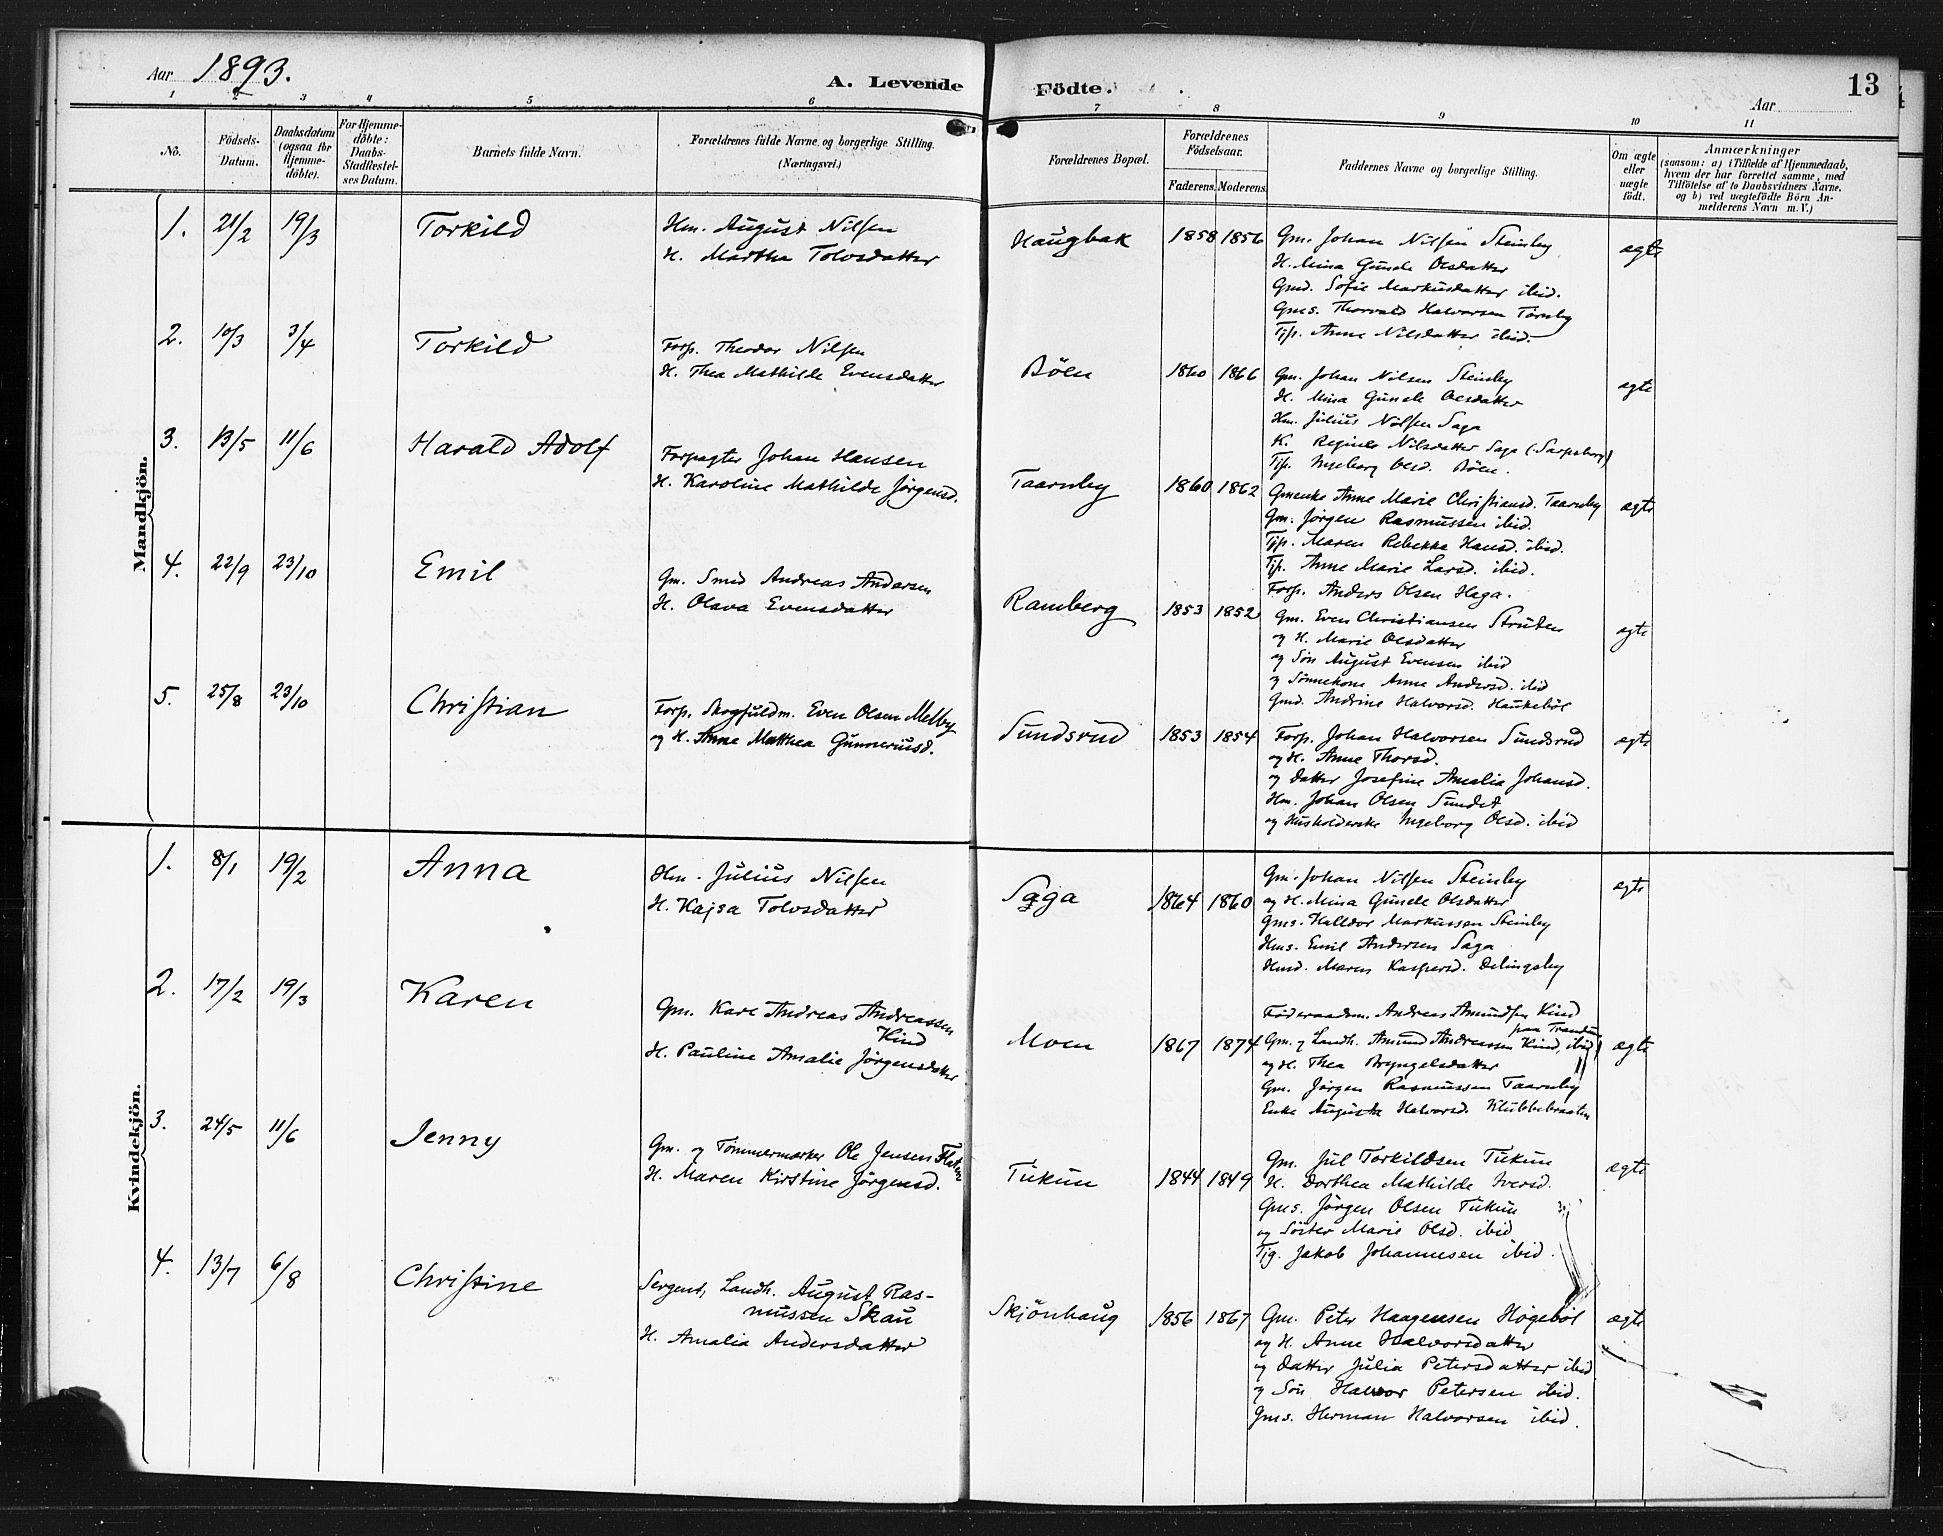 Aar 1893.
A. Levende Födte.
13
Aar
1 2 3 4 5 6 7 8 9 10 11
No.
Födsels-Datum.
Daabsdatum (ogsaa for Hjemme-döbte).
For Hjemme-döbte: Daabs-Stadfæstel-ses Datum.
Barnets fulde Navn.
Forældrenes fulde Navne og borgerlige Stilling. (Næringsvei.)
Forældrenes Bopæl.
Forældrenes Födselsaar.
Faderens. Moderens.
Faddernes Navne og borgerlige Stilling.
Om ægte eller uægte födt.
Anmærkninger
(saasom: a) i Tilfælde af Hjemmedaab,
hvem der har forrettet samme, med
Tilföielse af to Daabsvidners Navne.
og b) ved uægtefödte Börn An-
melderens Navn m. V.)
Mandkjön.
1. 21/2 19/3 Torkild
Hm. August Nilsen
H. Marthe Tolvsdatter
Haugbak 1858 1856
Gm. Johan Nilsen Steinby
H. Mina Gunde Olsdatter
Gmd. Sofie Markusdatter ibid.
Gms. Thorvald Halvorsen Tørnby
Tjp. Anne Nilsdatter ibid.
ægte
2. 10/3 3/4 Torkild
Forp. Theodor Nilsen
H. Thea Mathilde Evensdatter
Böen 1860 1866
Gm. Johan Nilsen Steinby
H. Mina Gunde Olsdatter
Hm. Julius Nilsen Saga
K. Regine Nilsdatter Saga (Sarpsborg)
Tjp. Ingeborg Olsd. Böen.
ægte
3. 13/5 11/6 Harald Adolf
Forpagter Johan Hansen
H. Karoline Mathilde Jørgensd.
Taarnby 1860 1862
Gmenke Anne Marie Christiansd. Taarnby
Gm. Jørgen Rasmussen ibid.
Tjp. Maren Rebekka Hansd. ibid.
Tjp. Anne Marie Larsd. ibid.
Forp. Anders Olsen Haga.
ægte
4. 22/9 23/10 Emil
Gm. Smed Andreas Andersen
H. Olava Evensdatter
Ramberg 1853 1852
Gm. Even Christiansen Struten
og H. Marie Olsdatter
og Søn August Evensen ibid
og Sønnekone Anne Andersd. ibid
Gmd. Andrine Halvorsd. Haukebøl
ægte
5. 25/8 23/10 Christian
Forp. Skogfuldm. Even Olsen Melby
og H. Anne Mathea Gunneriusd.
Sundsrud 1853 1854
Forp. Johan Halvorsen Sundsrud
og H. Anne Thorsd.
og Datter Josefine Amalia Johansd.
Hm. Johan Olsen Sundet
og Husholderske Ingeborg Olsd. ibid
ægte
Kvindekjön.
1. 8/1 19/2 Anna
Hm. Julius Nilsen
H. Kajsa Tolvsdatter
Saga 1864 1860
Gm. Johan Nilsen Steinby
og H. Mina Gunde Olsdatter
Gms. Halldor Markussen Steinby
Hms. Emil Andersen Saga
Hmd. Maren Kaspersd. Delingsby
ægte
2. 17/2 19/3 Karen
Gm. Karl Andreas Andreassen
Kind
H. Pauline Amalie Jørgensdatter
Moen 1867 1874
Föderaadsm. Andreas Amundsen Kind
paa Trandum
Gm. og Landh. Amund Andreassen Kind, ibid
og H. Thea Bryngelsdatter
Gm. Jørgen Rasmussen Taarnby
Enke Augusta Halvorsd. Klubbebraaten
ægte
3. 24/5 11/6 Jenny
Gm. og Tömmermærker Ole Jensen Flaten
H. Maren Kirstine Jørgensd.
Tukun 1844 1849
Gm. Jul Torkildsen Tukun
H. Dorthea Mathilde Iversd.
Gms. Jørgen Olsen Tukun
og Söster Marie Olsd. ibid
Tjg. Jakob Johannesen ibid.
ægte
4. 13/7 6/8 Christine
Sergent, Landh. August Ras-
mussen Skau
H. Amalia Andersdatter
Skjönhaug 1856 1867
Gm. Peter Haagensen Högebøl
og H. Anne Halvorsdatter
og Datter Julia Petersdatter ibid
og Søn Halvor Petersen ibid.
Gms. Herman Halvorsen ibid.
ægte